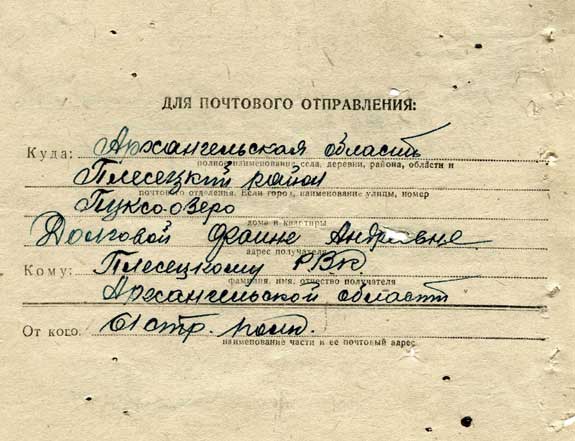 ДЛЯ ПОЧТОВОГО ОТПРАВЛЕНИЯ:
Куда: Архангельская область
полное наименование села, деревни, района, области и
Плесецкий район
почтового отделения. Если город, наименование улицы, номер
Пуксо-озеро
дома и квартиры
Долговой Фаине Андревне
адрес получателя
Кому: Плесецкому РВК
фамилия, имя, отчество получателя
Архангельской области
От кого: стр.
наименование части и ее почтовый адрес